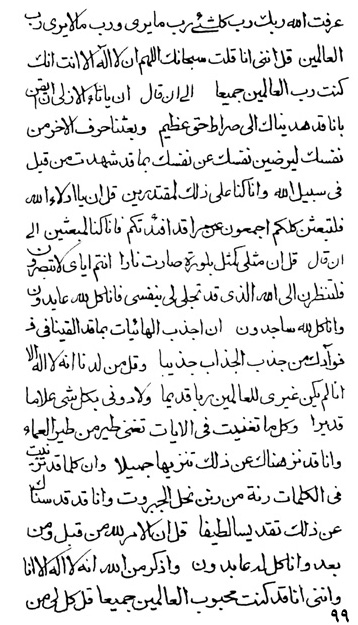 عرفت الله ربك رب كلشئ رب مايرى ورب مالايرى رب
العالمين قل انني انا قلت سبحانك اللهم ان لا اله الا انت انك
كنت رب العالمين جميعا الى ان قال ان ياثاء الازل ان ايقن
بانا قد هديناك الى صراط حق عظيم وبعثنا حرف الاخر من
نفسك ليرضين نفسك عن نفسك بما قد شهدت من قبل
في سبيل الله وانا كنا على ذلك لمقتدرين قل ان يا ادلاء الله
فلتبعثن كلكم اجمعون افئدتكم فانا كنا لمبعثين الى
ان قال قل ان مثلي كمثل بلورة صارت نارا انتم اياي لاتبصرون
فلتنظرن الى الله الذي قد تجلى لي بنفسي فانا كل لله عابدون
وانا كل لله ساجدون ان اجذب الهائيات بما قد القينا في
فوآدك من جذب الجذاب جذيبا وقل من لدنا انه لا اله الا
انا لم يكن غيري للعالمين ربا قديما ولا دوني بكل شئ علاما
قديرا وكل ما تغنيت في الايات تغني طير من طير العماء
وانا قد نزهناك عن ذلك تنزيها جميلا وان كلما قد رنيت
في الكلمات رنة من رنن نحل الجبروت وانا قد قدسناك
عن ذلك تقديسا لطيفا قل ان الامر لله من قبل ومن
بعد وانا كل له عابدون واذكر من الله انه لا اله الا انا
وانني انا قد كنت محبوب العالمين جميعا قل كل لي من
٩٩